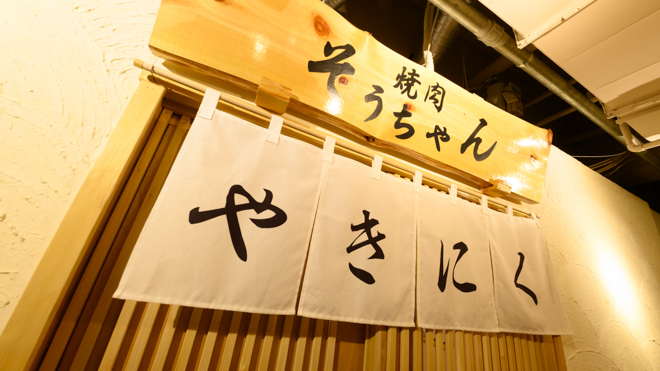 焼肉
そうちゃん
やきにく